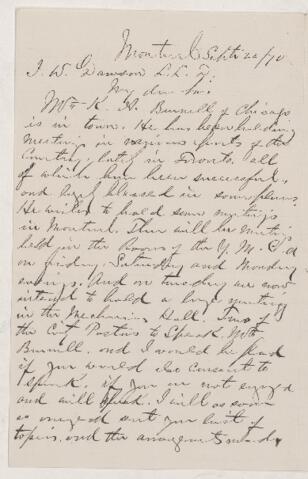 Montreal Sept 20/70
J. W. Dawson L.L.D.
My dear Sir.
Mr K. A. Burnell of Chicago
is in town. He has been holding
Meetings in various parts of the
Country, lately in Toronto. all
of which have been successful,
and much blessed in some places.
He wishes to hold some meetings
in Montreal. There will be meetings
held in the Rooms of the Y. M. C. A
on Friday Saturday and Monday
evenings. And on Tuesday we now
intend to hold a large meeting
in the Mechanics Hall. Two of
the City Pastors to speak. Mr
Burnell. and I would be glad
if you would also consent to
speak. if you are not engaged
and will speak. I will as soon
as arranged send you list of
topics. and the arrangements made